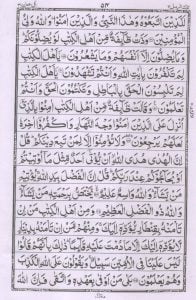 الَّذِيْنَ اتَّبَعُوْهُ وَهٰذَا النَّبِيُّ وَالَّذِيْنَ اٰمَنُوْا وَاللّٰهُ وَلِيُّ
الْمُؤْمِنِيْنَ وَدَّتْ طَّآئِفَةٌ مِّنْ اَهْلِ الْكِتٰبِ لَوْ يُضِلُّوْنَكُمْ
وَمَا يُضِلُّوْنَ اِلَّآ اَنْفُسَهُمْ وَمَا يَشْعُرُوْنَ يٰٓاَهْلَ الْكِتٰبِ
لِمَ تَكْفُرُوْنَ بِاٰيٰتِ اللّٰهِ وَاَنْتُمْ تَشْهَدُوْنَ يٰٓاَهْلَ الْكِتٰبِ
لِمَ تَلْبِسُوْنَ الْحَقَّ بِالْبَاطِلِ وَتَكْتُمُوْنَ الْحَقَّ وَاَنْتُمْ
تَعْلَمُوْنَ وَقَالَتْ طَّآئِفَةٌ مِّنْ اَهْلِ الْكِتٰبِ اٰمِنُوْا بِالَّذِيْٓ
اُنْزِلَ عَلَى الَّذِيْنَ اٰمَنُوْا وَجْهَ النَّهَارِ وَاكْفُرُوْٓا اٰخِرَهٗ
لَعَلَّهُمْ يَرْجِعُوْنَ وَلَا تُؤْمِنُوْٓا اِلَّا لِمَنْ تَبِعَ دِيْنَكُمْ قُلْ
اِنَّ الْهُدٰى هُدَى اللّٰهِ اَنْ يُّؤْتٰٓى اَحَدٌ مِّثْلَ مَآ اُوْتِيْتُمْ
اَوْ يُحَآجُّوْكُمْ عِنْدَ رَبِّكُمْ قُلْ اِنَّ الْفَضْلَ بِيَدِ اللّٰهِ يُؤْتِيْهِ
مَنْ يَّشَآءُ وَاللّٰهُ وَاسِعٌ عَلِيْمٌ يَّخْتَصُّ بِرَحْمَتِهٖ مَنْ يَّشَآءُ
وَاللّٰهُ ذُو الْفَضْلِ الْعَظِيْمِ وَمِنْ اَهْلِ الْكِتٰبِ مَنْ اِنْ
تَاْمَنْهُ بِقِنْطَارٍ يُّؤَدِّهٖٓ اِلَيْكَ وَمِنْهُمْ مَّنْ اِنْ تَاْمَنْهُ بِدِيْنَارٍ
لَّا يُؤَدِّهٖٓ اِلَيْكَ اِلَّا مَا دُمْتَ عَلَيْهِ قَآئِمًا ذٰلِكَ بِاَنَّهُمْ قَالُوْا
لَيْسَ عَلَيْنَا فِى الْاُمِّيّٖنَ سَبِيْلٌ وَيَقُوْلُوْنَ عَلَى اللّٰهِ الْكَذِبَ
وَهُمْ يَعْلَمُوْنَ بَلٰى مَنْ اَوْفٰى بِعَهْدِهٖ وَاتَّقٰى فَاِنَّ اللّٰهَ